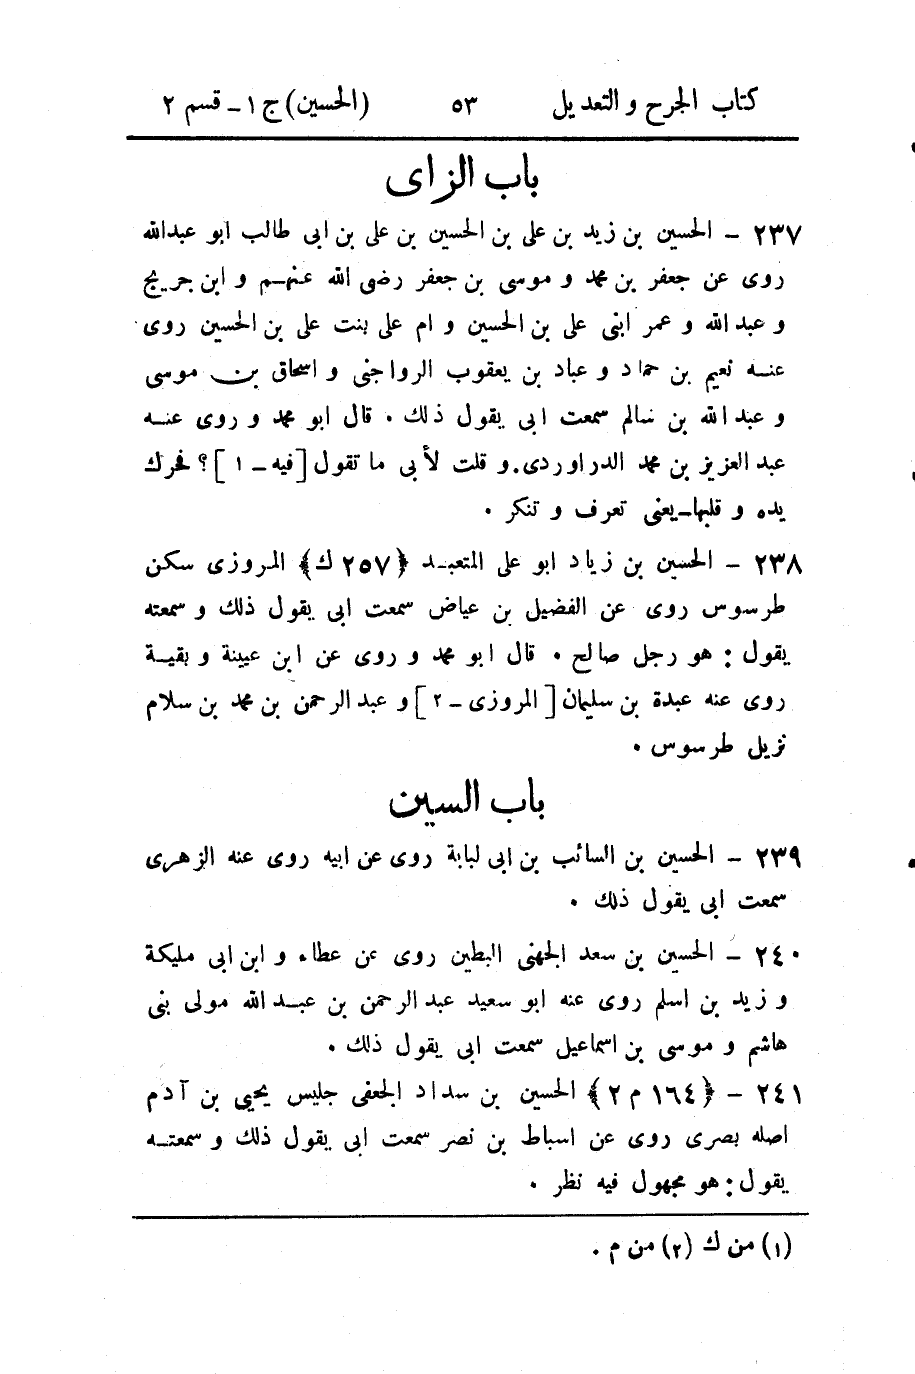 كتاب الجرح و التعديل ٥٣ (الحسين) ج ١ - قسم ٢
باب الزاى
٢٣٧ - الحسين بن زيد بن على بن الحسين بن على بن ابى طالب ابو عبدالله
روى عن جعفر بن محمد و موسى بن جعفر رضى الله عنهم و ابن جريج
و عبد الله و عمر ابنى على بن الحسين و ام على بنت على بن الحسين روى
عنه نعيم بن حماد و عباد بن يعقوب الرواجنى و اسحاق بن موسى
و عبد الله بن سالم سمعت ابى يقول ذلك . قال ابو محمد و روى عنه
عبد العزيز بن محمد الدراوردى . و قلت لأبى ما تقول [فيه - ١] ؟ فحرك
يده و قلبها - يعنى تعرف و تنكر .
٢٣٨ - الحسين بن زياد ابو على المتعبد ﴿٢٥٧ ك﴾ المروزى سكن
طرسوس روى عن الفضيل بن عياض سمعت ابى يقول ذلك و سمعته
يقول : هو رجل صالح . قال ابو محمد و روى عن ابن عيينة و بقية
روى عنه عبدة بن سليمان [المروزى - ٢] و عبد الرحمن بن محمد بن سلام
نزيل طرسوس .
باب السين
٢٣٩ - الحسين بن السائب بن ابى لبابة روى عن ابيه روى عنه الزهرى
سمعت ابى يقول ذلك .
٢٤٠ - الحسين بن سعد الجهنى البطين روى عن عطاء و ابن ابى مليكة
و زيد بن اسلم روى عنه ابو سعيد عبد الرحمن بن عبد الله مولى بنى
هاشم و موسى بن اسماعيل سمعت ابى يقول ذلك .
٢٤١ - ﴿١٦٤ م ٢﴾ الحسين بن سداد الجعفى جليس يحيى بن آدم
اصله بصرى روى عن اسباط بن نصر سمعت ابى يقول ذلك و سمعته
يقول : هو مجهول فيه نظر .
(١) من ك (٢) من م .